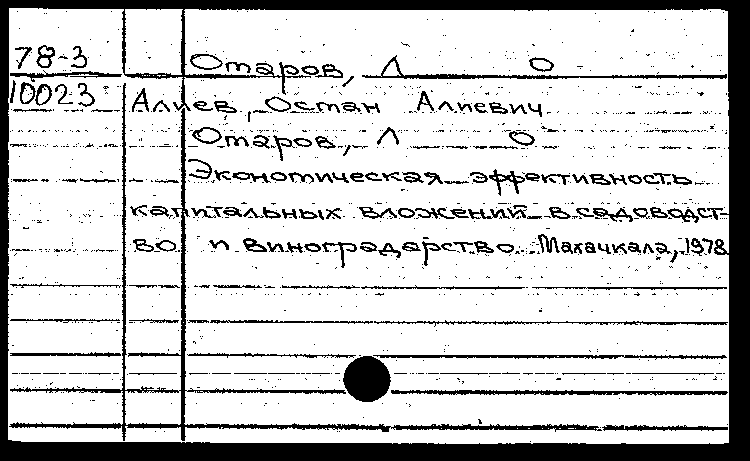 78-3 Отаров, Л О
10023 Алиев, Остан Алиевич
Отаров, Л О
Экономическая эффективность
капитальных вложений в садоводст-
во и виноградарство. Махачкала, 1978